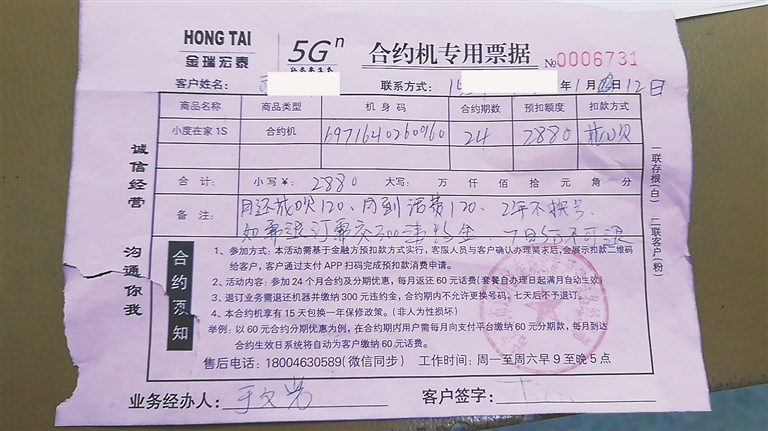 HONG TAI
金瑞宏泰
5Gⁿ
合约机专用票据
№0006731
客户姓名:
联系方式: 年1月 日12日
商品名称 商品类型 机身码 合约期数 预扣额度 扣款方式
小度在家1S 合约机 6971640260960 24 2880 花呗
合计: 小写¥: 2880 大写: 万 仟 佰 拾 元 角 分
备注: 月还花呗120、月到话费120、2年不换号、
如需退订需交300违约金 7日后不可退
诚信经营
沟通你我
合约须知
1、参加方式:本活动需基于金融方预扣款方式实行,客服人员与客户确认办理需求后,会展示扣款二维码
给客户,客户通过支付APP扫码完成预扣款消费申请。
2、活动内容:参加24个月合约及分期优惠,每月返还60元话费(套餐自办理日起满月自动生效)
3、退订业务需退还机器并缴纳300元违约金,合约期内不允许更换号码,七天后不予退订。
4、本合约机享有15天包换一年保修政策。(非人为性损坏)
举例:以60元合约分期优惠为例,在合约期内用户需每月向支付平台缴纳60元分期款,每月到达
合约生效日系统将自动为客户缴纳60元话费。
售后电话:18004630589(微信同步) 工作时间:周一至周六早9至晚5点
一联存根(白) 二联客户(粉)
业务经办人:
客户签字: